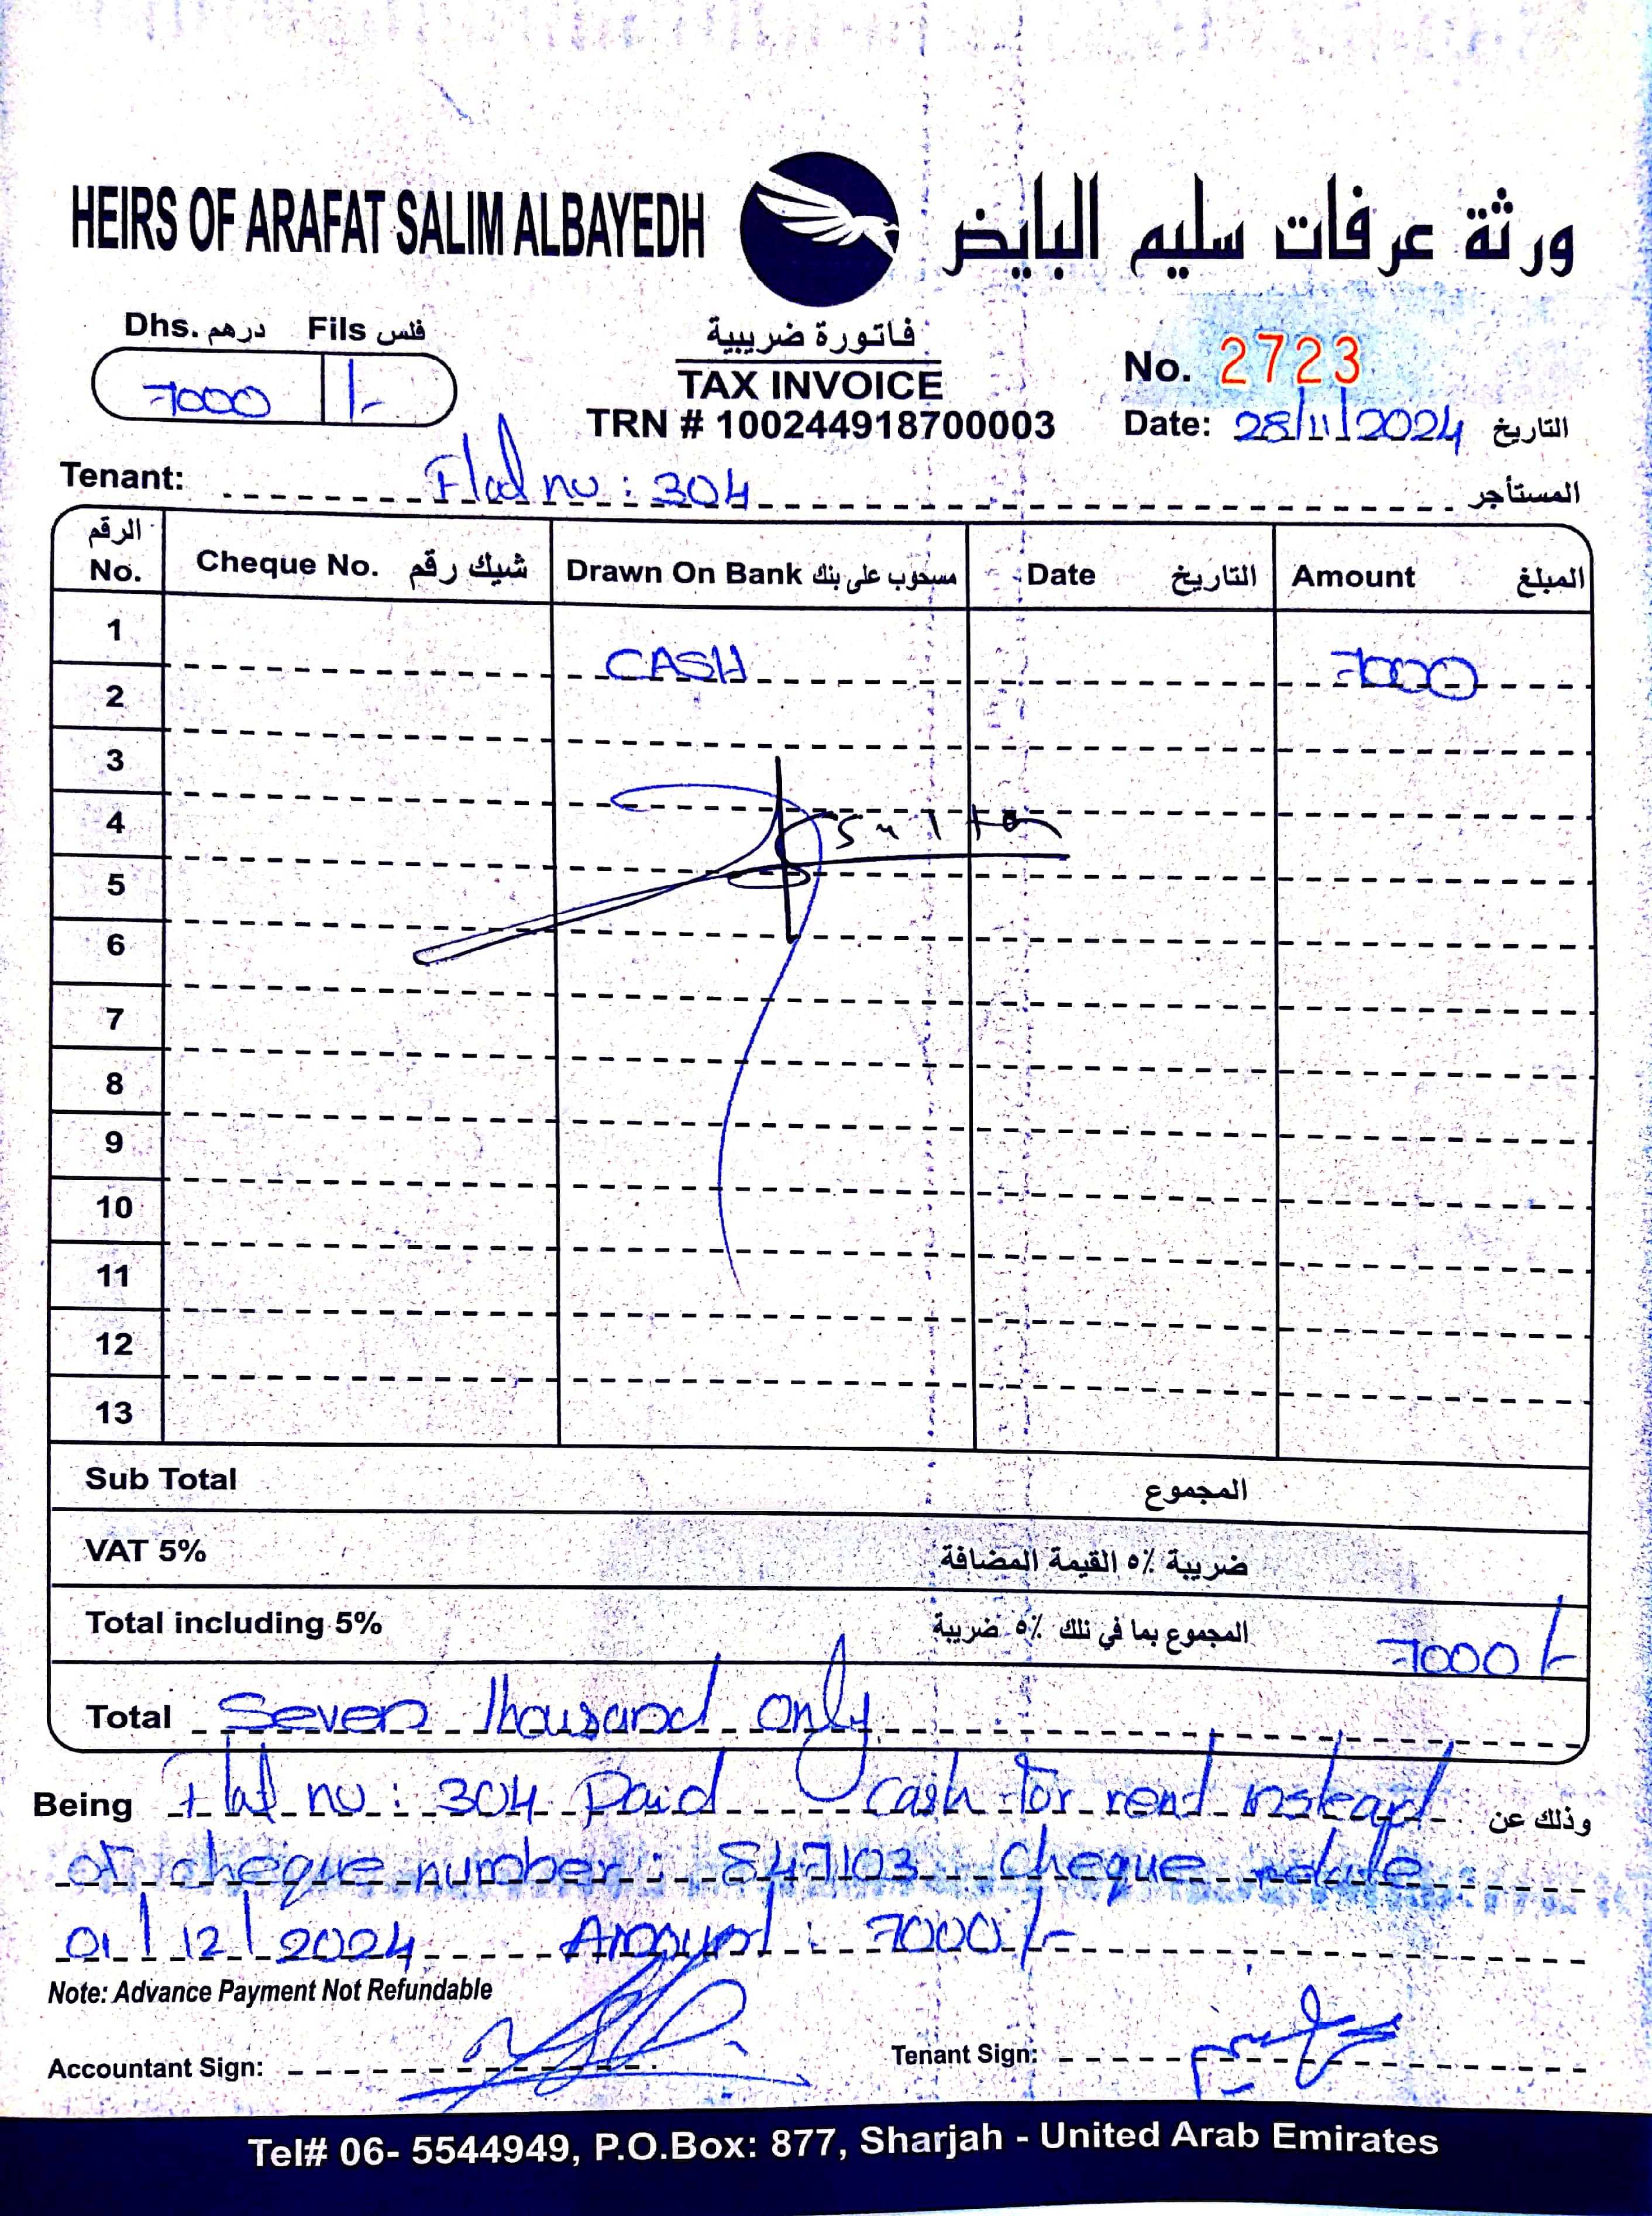 HEIRS OF ARAFAT SALIM ALBAYEDH ورثة عرفات سليم البايض
Dhs. درهم Fils فلس
7000 /-
فاتورة ضريبية
TAX INVOICE
TRN # 100244918700003
No. 2723
Date: 28/11/2024 التاريخ
Tenant: Flat no : 304 المستأجر
الرقم No. Cheque No. شيك رقم Drawn On Bank مسحوب على بنك Date التاريخ Amount المبلغ
1 CASH 7000
2
3
4
5
6
7
8
9
10
11
12
13
Sub Total المجموع
VAT 5% ضريبة ٥٪ القيمة المضافة
Total including 5% المجموع بما في ذلك ٥٪ ضريبة 7000/-
Total Seven thousand only
Being Flat no : 304 Paid cash for rent instead وذلك عن
of cheque number : 847103 cheque date
01/12/2024 Amount : 7000/-
Note: Advance Payment Not Refundable
Accountant Sign: Tenant Sign:
Tel# 06- 5544949, P.O.Box: 877, Sharjah - United Arab Emirates